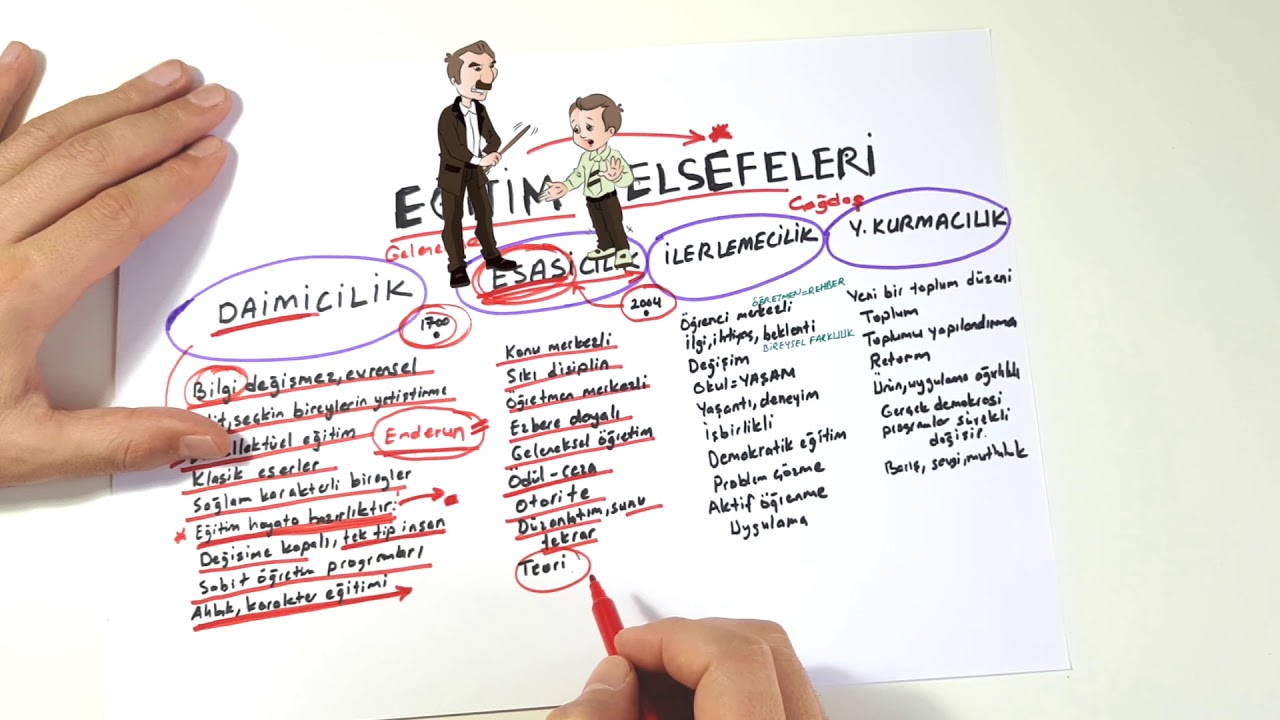 EĞİTİM FELSEFELERİ
Çağdaş
DAİMİCİLİK
1700
Bilgi değişmez, evrensel
seçkin bireylerin yetiştirme
eğitim
Enderun
Klasik eserler
Sağlam karakterli bireyler
Eğitim hayata hazırlıktır.
Değişime kapalı, tek tip insan
Sabit öğretim programları
Ahlak, karakter eğitimi
ESASİCİLİK
2004
Konu merkezli
Sıkı disiplin
Öğretmen merkezli
Ezbere dayalı
Geleneksel öğretim
Ödül-ceza
Otorite
Düzanlatım, sunu
tekrar
Teori
İLERLEMECİLİK
ÖĞRETMEN=REHBER
Öğrenci merkezli
İlgi, ihtiyaç, beklenti
BİREYSEL FARKLILIK
Değişim
Okul=YAŞAM
Yaşantı, deneyim
İşbirlikli
Demokratik eğitim
Problem çözme
Aktif öğrenme
Uygulama
Y. KURMACILIK
Yeni bir toplum düzeni
Toplum
Toplumu yapılandırma
Reform
Ürün, uygulama ağırlıklı
Gerçek demokrasi
programlar sürekli
değişir.
Barış, sevgi, mutluluk